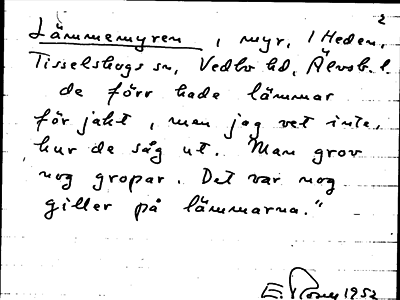 2
Lämmemyren, myr, 1 Heden,
Tisselskogs sn, Vedbo hd, Älvsb. l.
de förr hade lämmar
för jakt, man jag vet inte,
hur de såg ut. Man grov
nog gropar. Det var nog
giller på lämmarna."
E. Rosen 1952